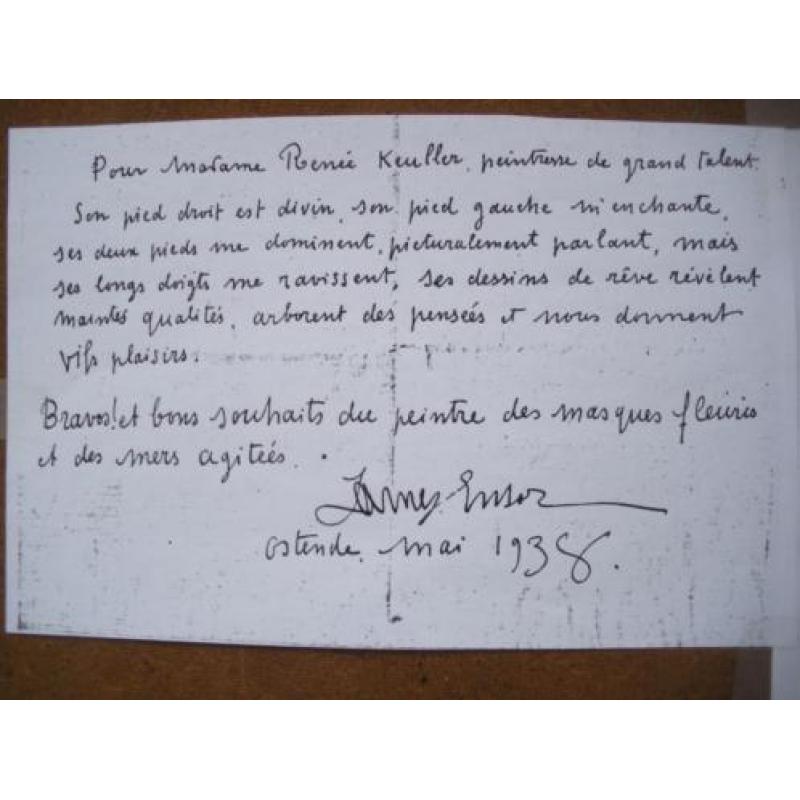 Pour Madame Renée Keuller, peintresse de grand talent.
Son pied droit est divin, son pied gauche m'enchante,
ses deux pieds me dominent, picturalement parlant, mais
ses longs doigts me ravissent, ses dessins de rêve révèlent
maintes qualités, arborent des pensées et nous donnent
vifs plaisirs.
Bravos! et bons souhaits du peintre des masques fleuris
et des mers agitées.
James Ensor
Ostende, mai 1938.